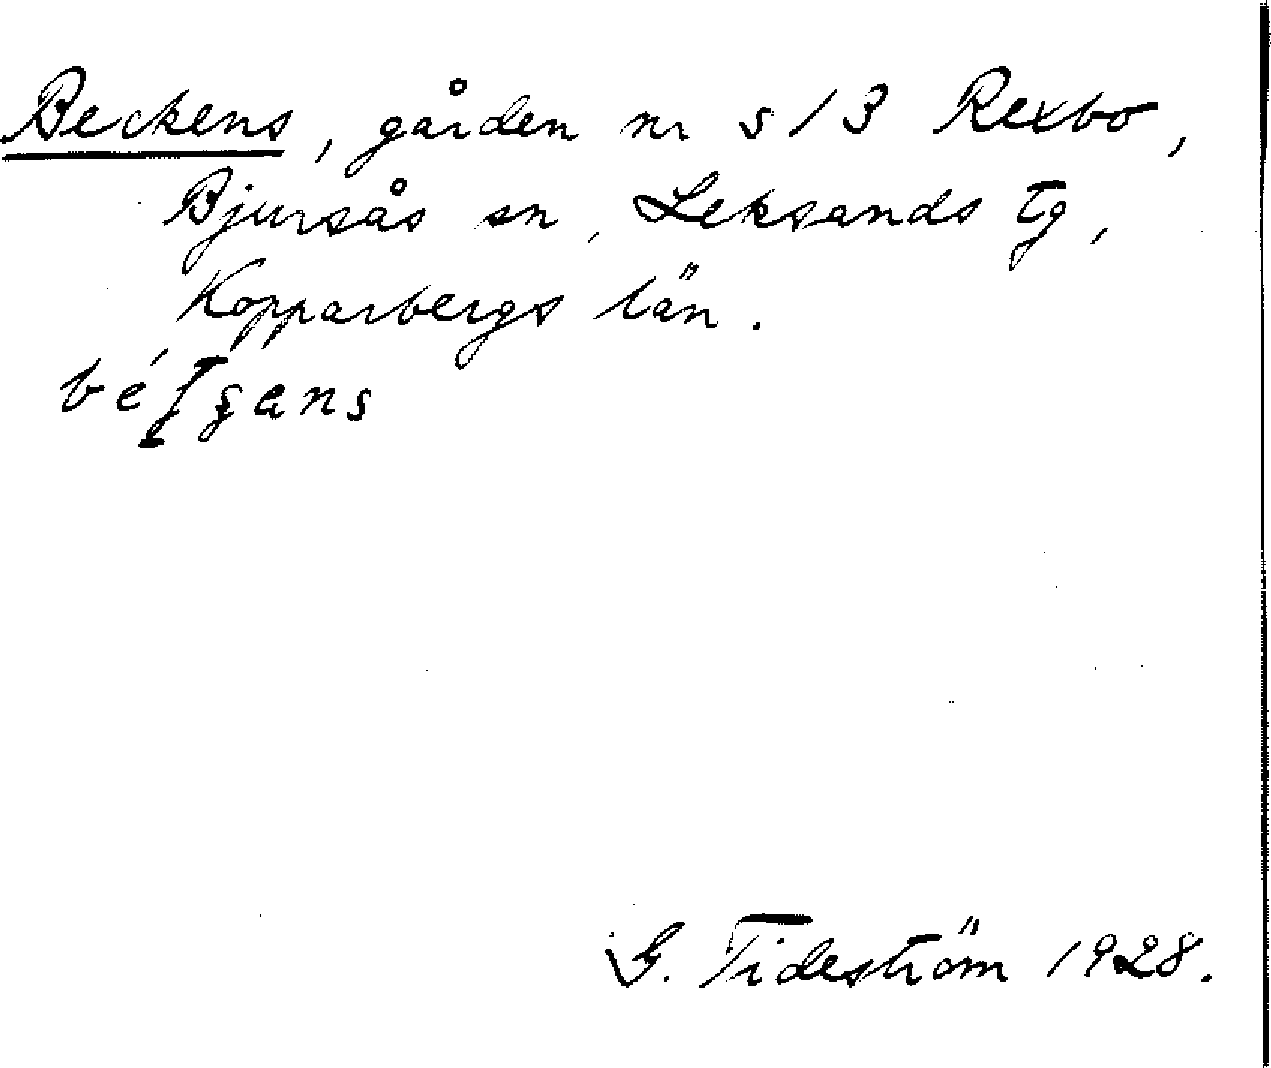 Beckens, gården nr s 13 Rexbo,
Bjursås sn, Leksands tg,
Kopparbergs län.
G. Tideström 1928.